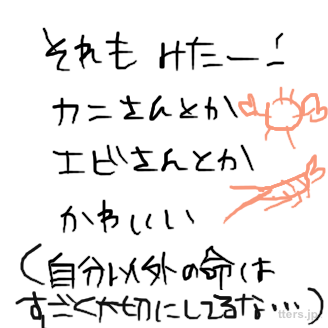 それも けたー!
カニさんとか
エビさんとか
かわいい
(自分以外の命は
すごく大切にしてるな…)
tters.jp